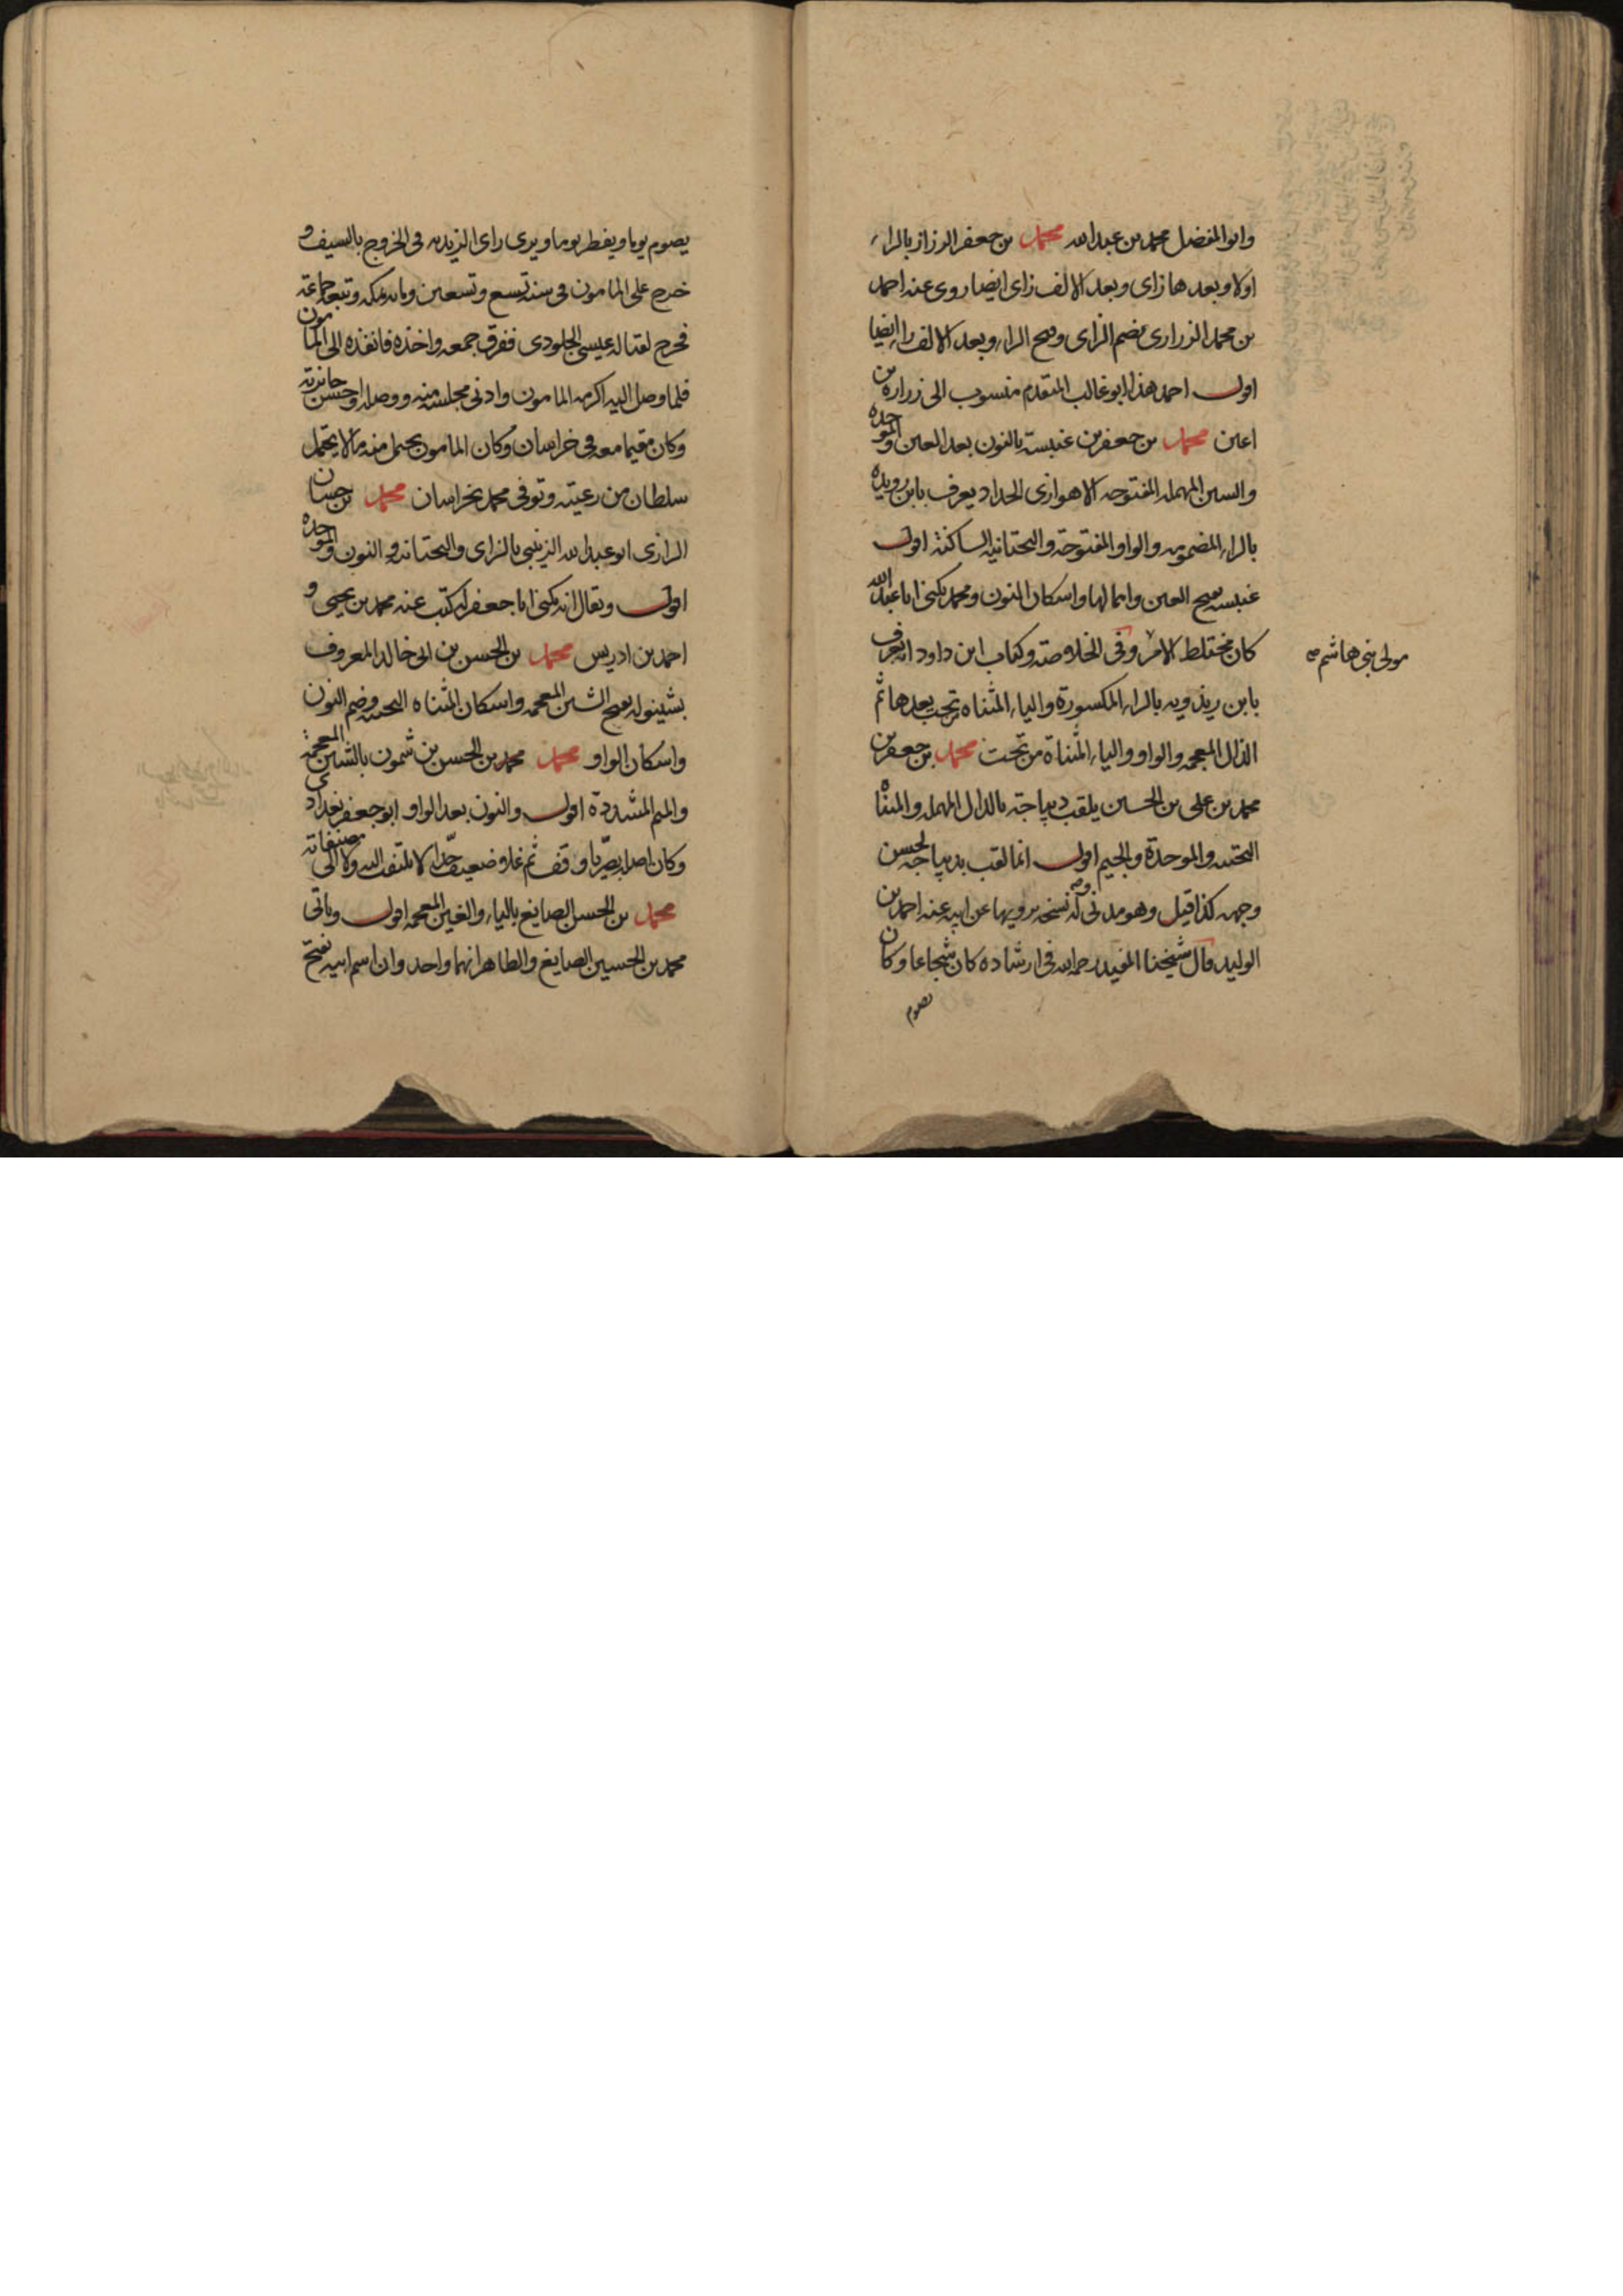 وابو المفضل محمد بن عبد الله محمد بن جعفر الرزاز بالراء
اولا وبعدها زاى وبعد الالف زاى ايضا روى عنه احمد
بن محمد الزرارى بضم الزاى وفتح الراء وبعد الالف راء ايضا
اقول احمد هذا ابو غالب المتقدم منسوب الى زرارة بن
اعين محمد بن جعفر بن عنبسة بالنون بعد العين والموحده
والسين المهمله المفتوحه الاهوازى الحداد يعرف بابن رويده
بالراء المضمومه والواو المفتوحة والتحتانيه الساكنة اقول
عنبسه بفتح العين واهمالها واسكان النون ومحمد يكنى ابا عبد الله
كان مختلط الامر وفى الخلاصة وكتاب ابن داود انه يعرف
مولى بنى هاشم صح
بابن ريذويه بالراء المكسورة والياء المثناه تحت بعدها ثم
الذال المعجمه والواو والياء المثناة من تحت محمد بن جعفر بن
محمد بن على بن الحسين يلقب ديباجة بالدال المهمله والمثناه
التحتيه والموحدة والجيم اقول انما لقب بديباجه لحسن
وجهه كذا قيل وهو مدنى له نسخه يرويها عن ابيه عنه احمد بن
الوليد قال شيخنا المفيد رحمه الله فى ارشاده كان شجاعا وكان
يصوم
يصوم يوما ويفطر يوما ويرى راى الزيديه فى الخروج بالسيف و
خرج على المامون فى سنة تسع وتسعين ومائه بمكه وتبعه جماعة
فخرج لقتاله عيسى الجلودى ففرق جمعه واخذه فانفذه الى المامون
فلما وصل اليه اكرمه المامون وادنى مجلسه منه ووصله واحسن جائزته
وكان مقيما معه فى خراسان وكان المامون يحتمل منه ما لا يحتمل
سلطان من رعيته وتوفى محمد بخراسان محمد بن حسان
الرازى ابو عبد الله الزينبى بالزاى والتحتانيه والنون والموحده
اقول ويقال انه يكنى ابا جعفر له كتب عنه محمد بن يحيى و
احمد بن ادريس محمد بن الحسن بن ابى خالد المعروف
بشينوله بفتح الشين المعجمه واسكان المثناه التحتيه وضم النون
واسكان الواو محمد محمد بن الحسن بن شمون بالشين المعجمة
والميم المشددة اقول والنون بعد الواو ابو جعفر بغدادى
وكان اصله بصريا وقف ثم غلا وضعيف جدا لا يلتفت اليه ولا الى مصنفاته
محمد بن الحسن الصايغ بالياء والغين المعجمه اقول وياتى
محمد بن الحسين الصايغ والظاهر انهما واحد وان اسم ابيه بفتح